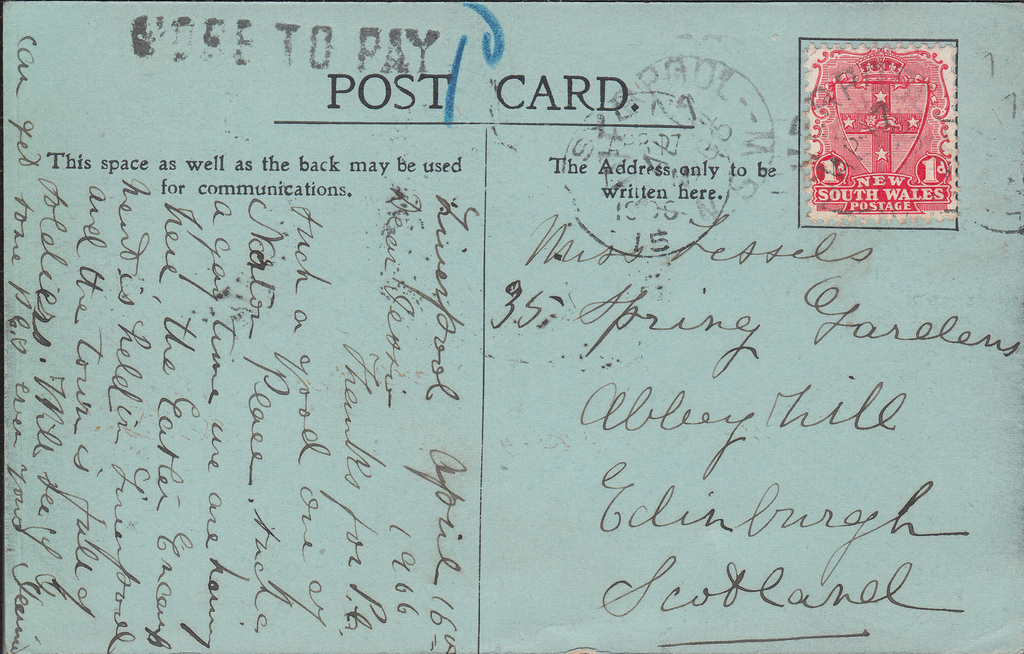 MORE TO PAY
1D
POST CARD.
This space as well as the back may be used
for communications.
The Address only to be
written here.
LIVERPOOL N.S.W
15
1d 1d
NEW
SOUTH WALES
POSTAGE
Liverpool April 16th
1906
Dear Jessie
Thanks for P.C.
Such a good one of
Place. Such a
a gay time we are having
here, the Easter Encamp
ment is held in Liverpool
and the town is full of
soldiers. Will see if I
can get some P.Cs ever yours
Miss Lessels
35. Spring Gardens
Abbey hill
Edinburgh
Scotland